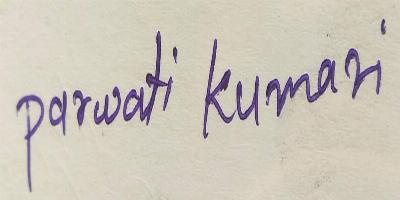 parwati kumari